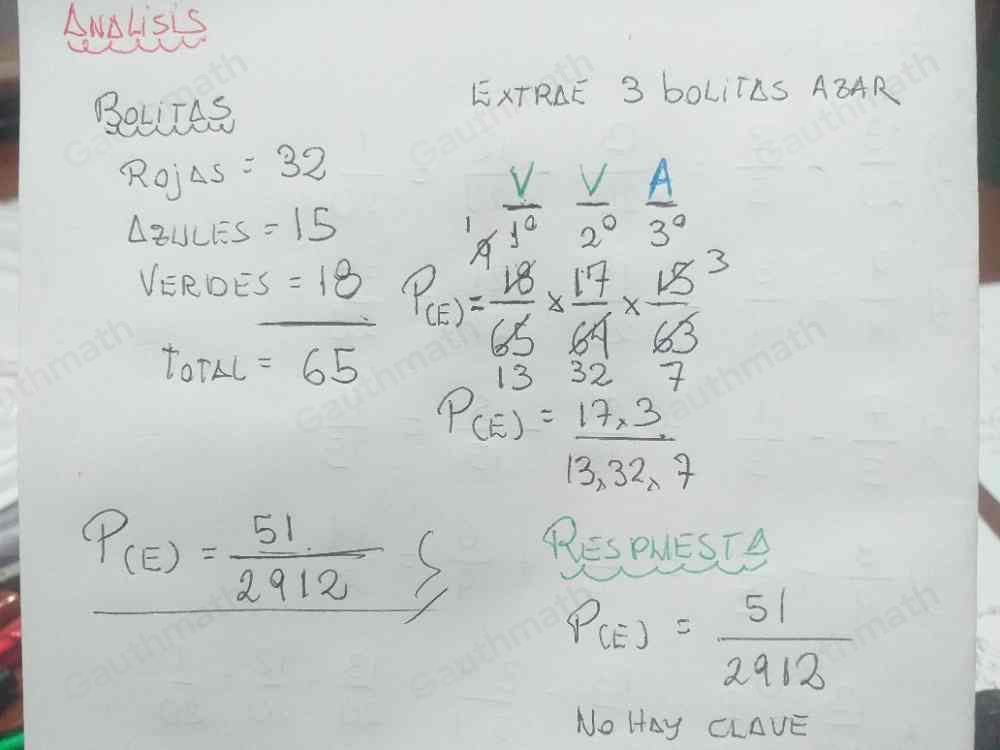 ANALISIS
BOLITAS
ROJAS = 32
AZULES = 15
VERDES = 18
TOTAL = 65
EXTRAE 3 BOLITAS AZAR
V V A
1° 2° 3°
1 9 3
P(E) = 18/65 x 17/64 x 15/63
13 32 7
P(E) = 17x3 / 13x32x7
P(E) = 51/2912
RESPUESTA
P(E) = 51/2912
NO HAY CLAVE
Gauthmath